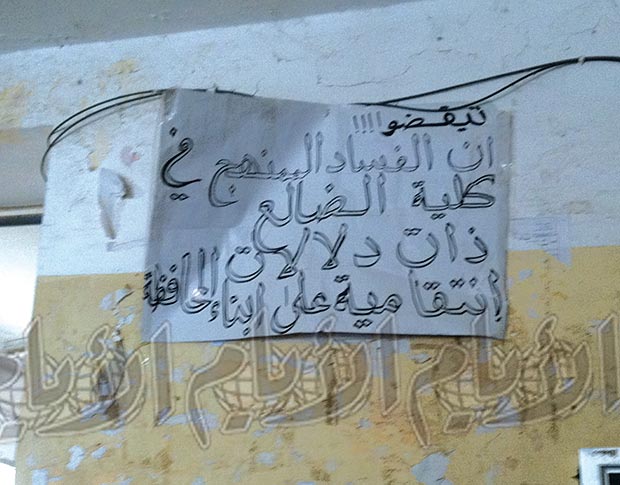 تيقضوا!!!!
ان الفساد الممنهج في
كلية الضالع
ذات دلالات
إنتقامية على ابناء المحافظة
الأيام الأيام الأيام الأيام